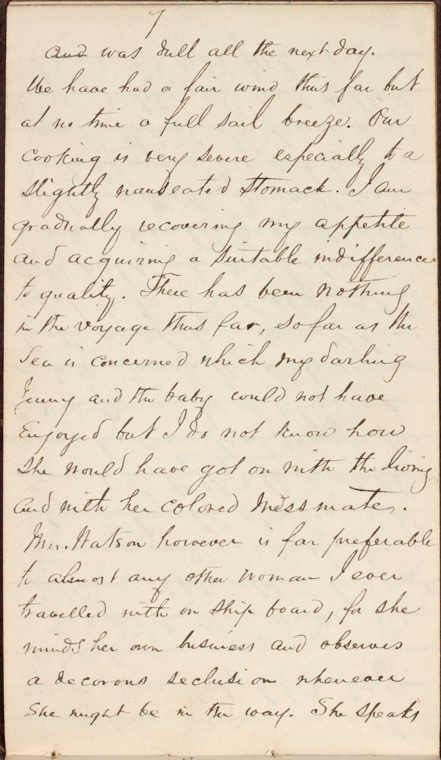 7
and was dull all the next day.
We have had a fair wind thus far but
at no time a full sail breeze. Our
cooking is very severe especially to a
slightly nauseated stomach. I am
gradually recovering my appetite
and acquiring a suitable indifference
to quality. There has been nothing
in the voyage thus far, so far as the
Sea is concerned which my darling
Jenny and the baby would not have
enjoyed but I do not know how
she would have got on with the living
and with her colored messmate.
Mrs. Watson however is far preferable
to almost any other woman I ever
travelled with on ship board, for she
minds her own business and observes
a decorous seclusion whenever
she might be in the way. She speaks